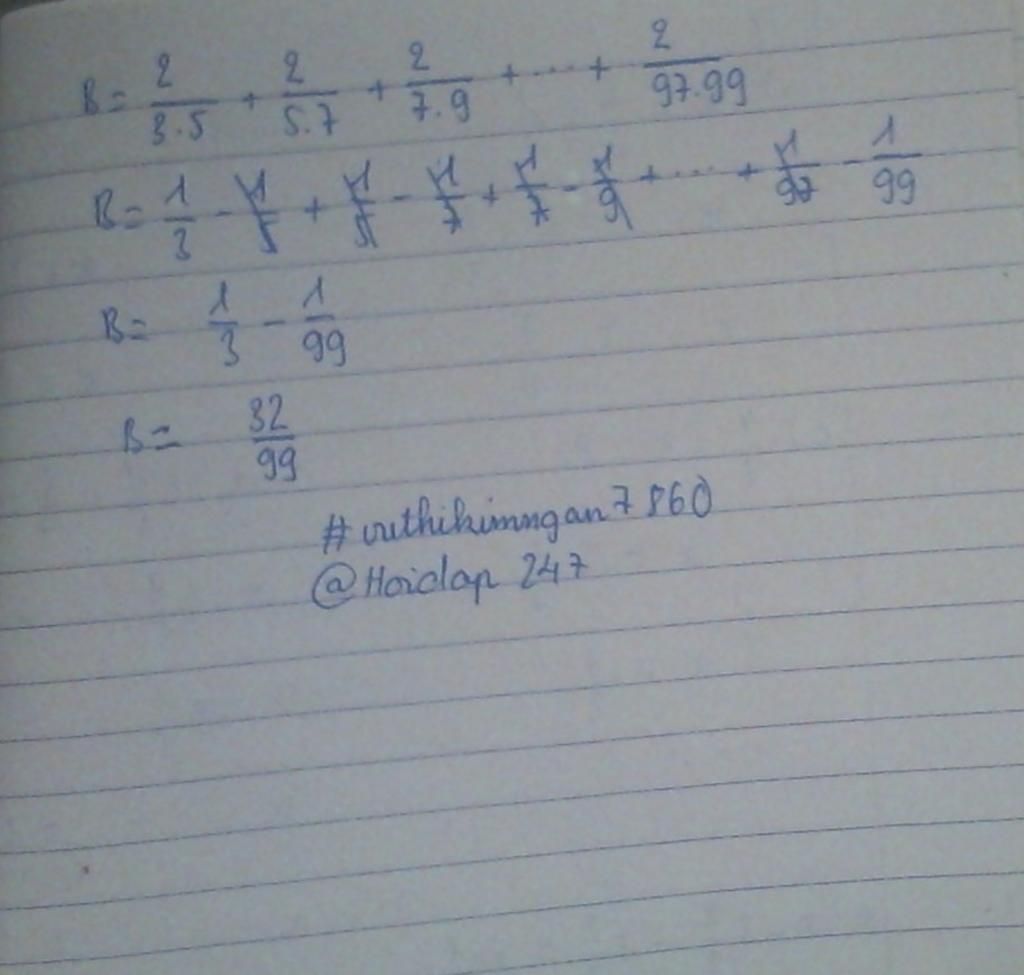 B = 2/3.5 + 2/5.7 + 2/7.9 + ... + 2/97.99
B = 1/3 - 1/5 + 1/5 - 1/7 + 1/7 - 1/9 + ... + 1/97 - 1/99
B = 1/3 - 1/99
B = 32/99
#vuthikimngan7860
@Hoidap 247